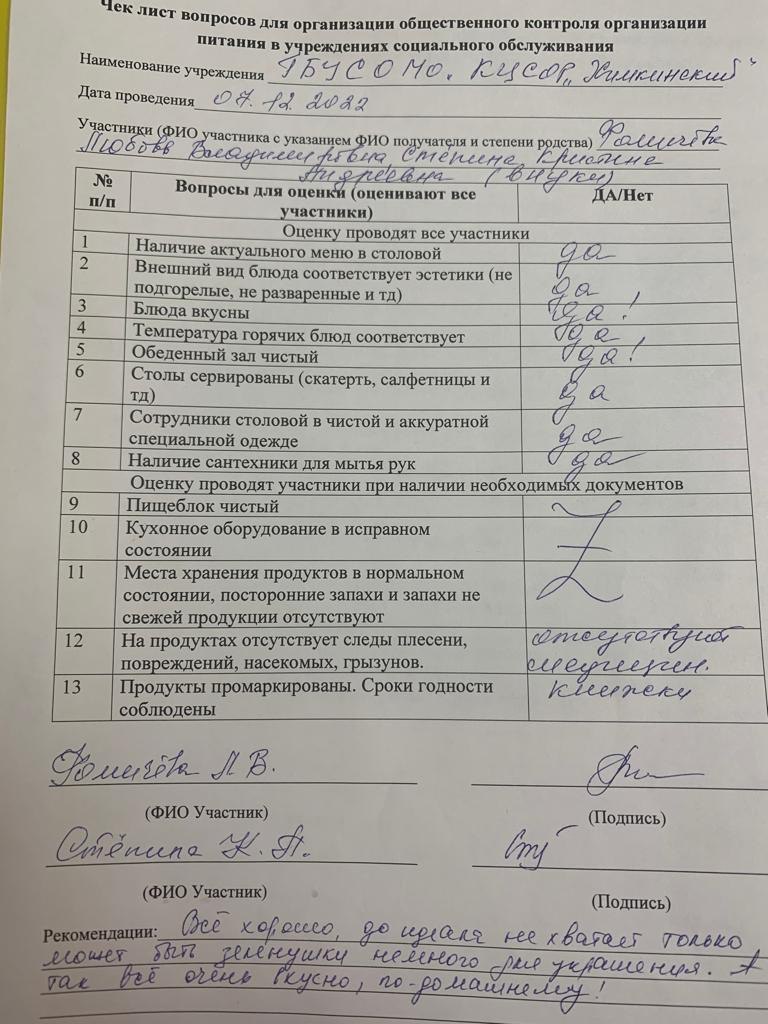 Чек лист вопросов для организации общественного контроля организации
питания в учреждениях социального обслуживания
Наименование учреждения ГБУСОМО. КЦСОР „Химкинский"
Дата проведения 07.12.2022
Участники (ФИО участника с указанием ФИО получателя и степени родства) Фомичёва
Любовь Владимировна, Стёпина Кристина
Андреевна (внуки)
№ п/п Вопросы для оценки (оценивают все участники) ДА/Нет
Оценку проводят все участники
1 Наличие актуального меню в столовой да
2 Внешний вид блюда соответствует эстетики (не
подгорелые, не разваренные и тд) да
3 Блюда вкусны да!
4 Температура горячих блюд соответствует да
5 Обеденный зал чистый да!
6 Столы сервированы (скатерть, салфетницы и
тд) да
7 Сотрудники столовой в чистой и аккуратной
специальной одежде да
8 Наличие сантехники для мытья рук да
Оценку проводят участники при наличии необходимых документов
9 Пищеблок чистый
10 Кухонное оборудование в исправном
состоянии
11 Места хранения продуктов в нормальном
состоянии, посторонние запахи и запахи не
свежей продукции отсутствуют
12 На продуктах отсутствует следы плесени, отсутствуют
повреждений, насекомых, грызунов. медицин.
13 Продукты промаркированы. Сроки годности книжки
соблюдены
Фомичёва Л В.
(ФИО Участник) (Подпись)
Стёпина К. А.
(ФИО Участник) (Подпись)
Рекомендации: Всё хорошо, до идеала не хватает только
может быть зеленушки немного для украшения. А
так всё очень вкусно, по-домашнему!